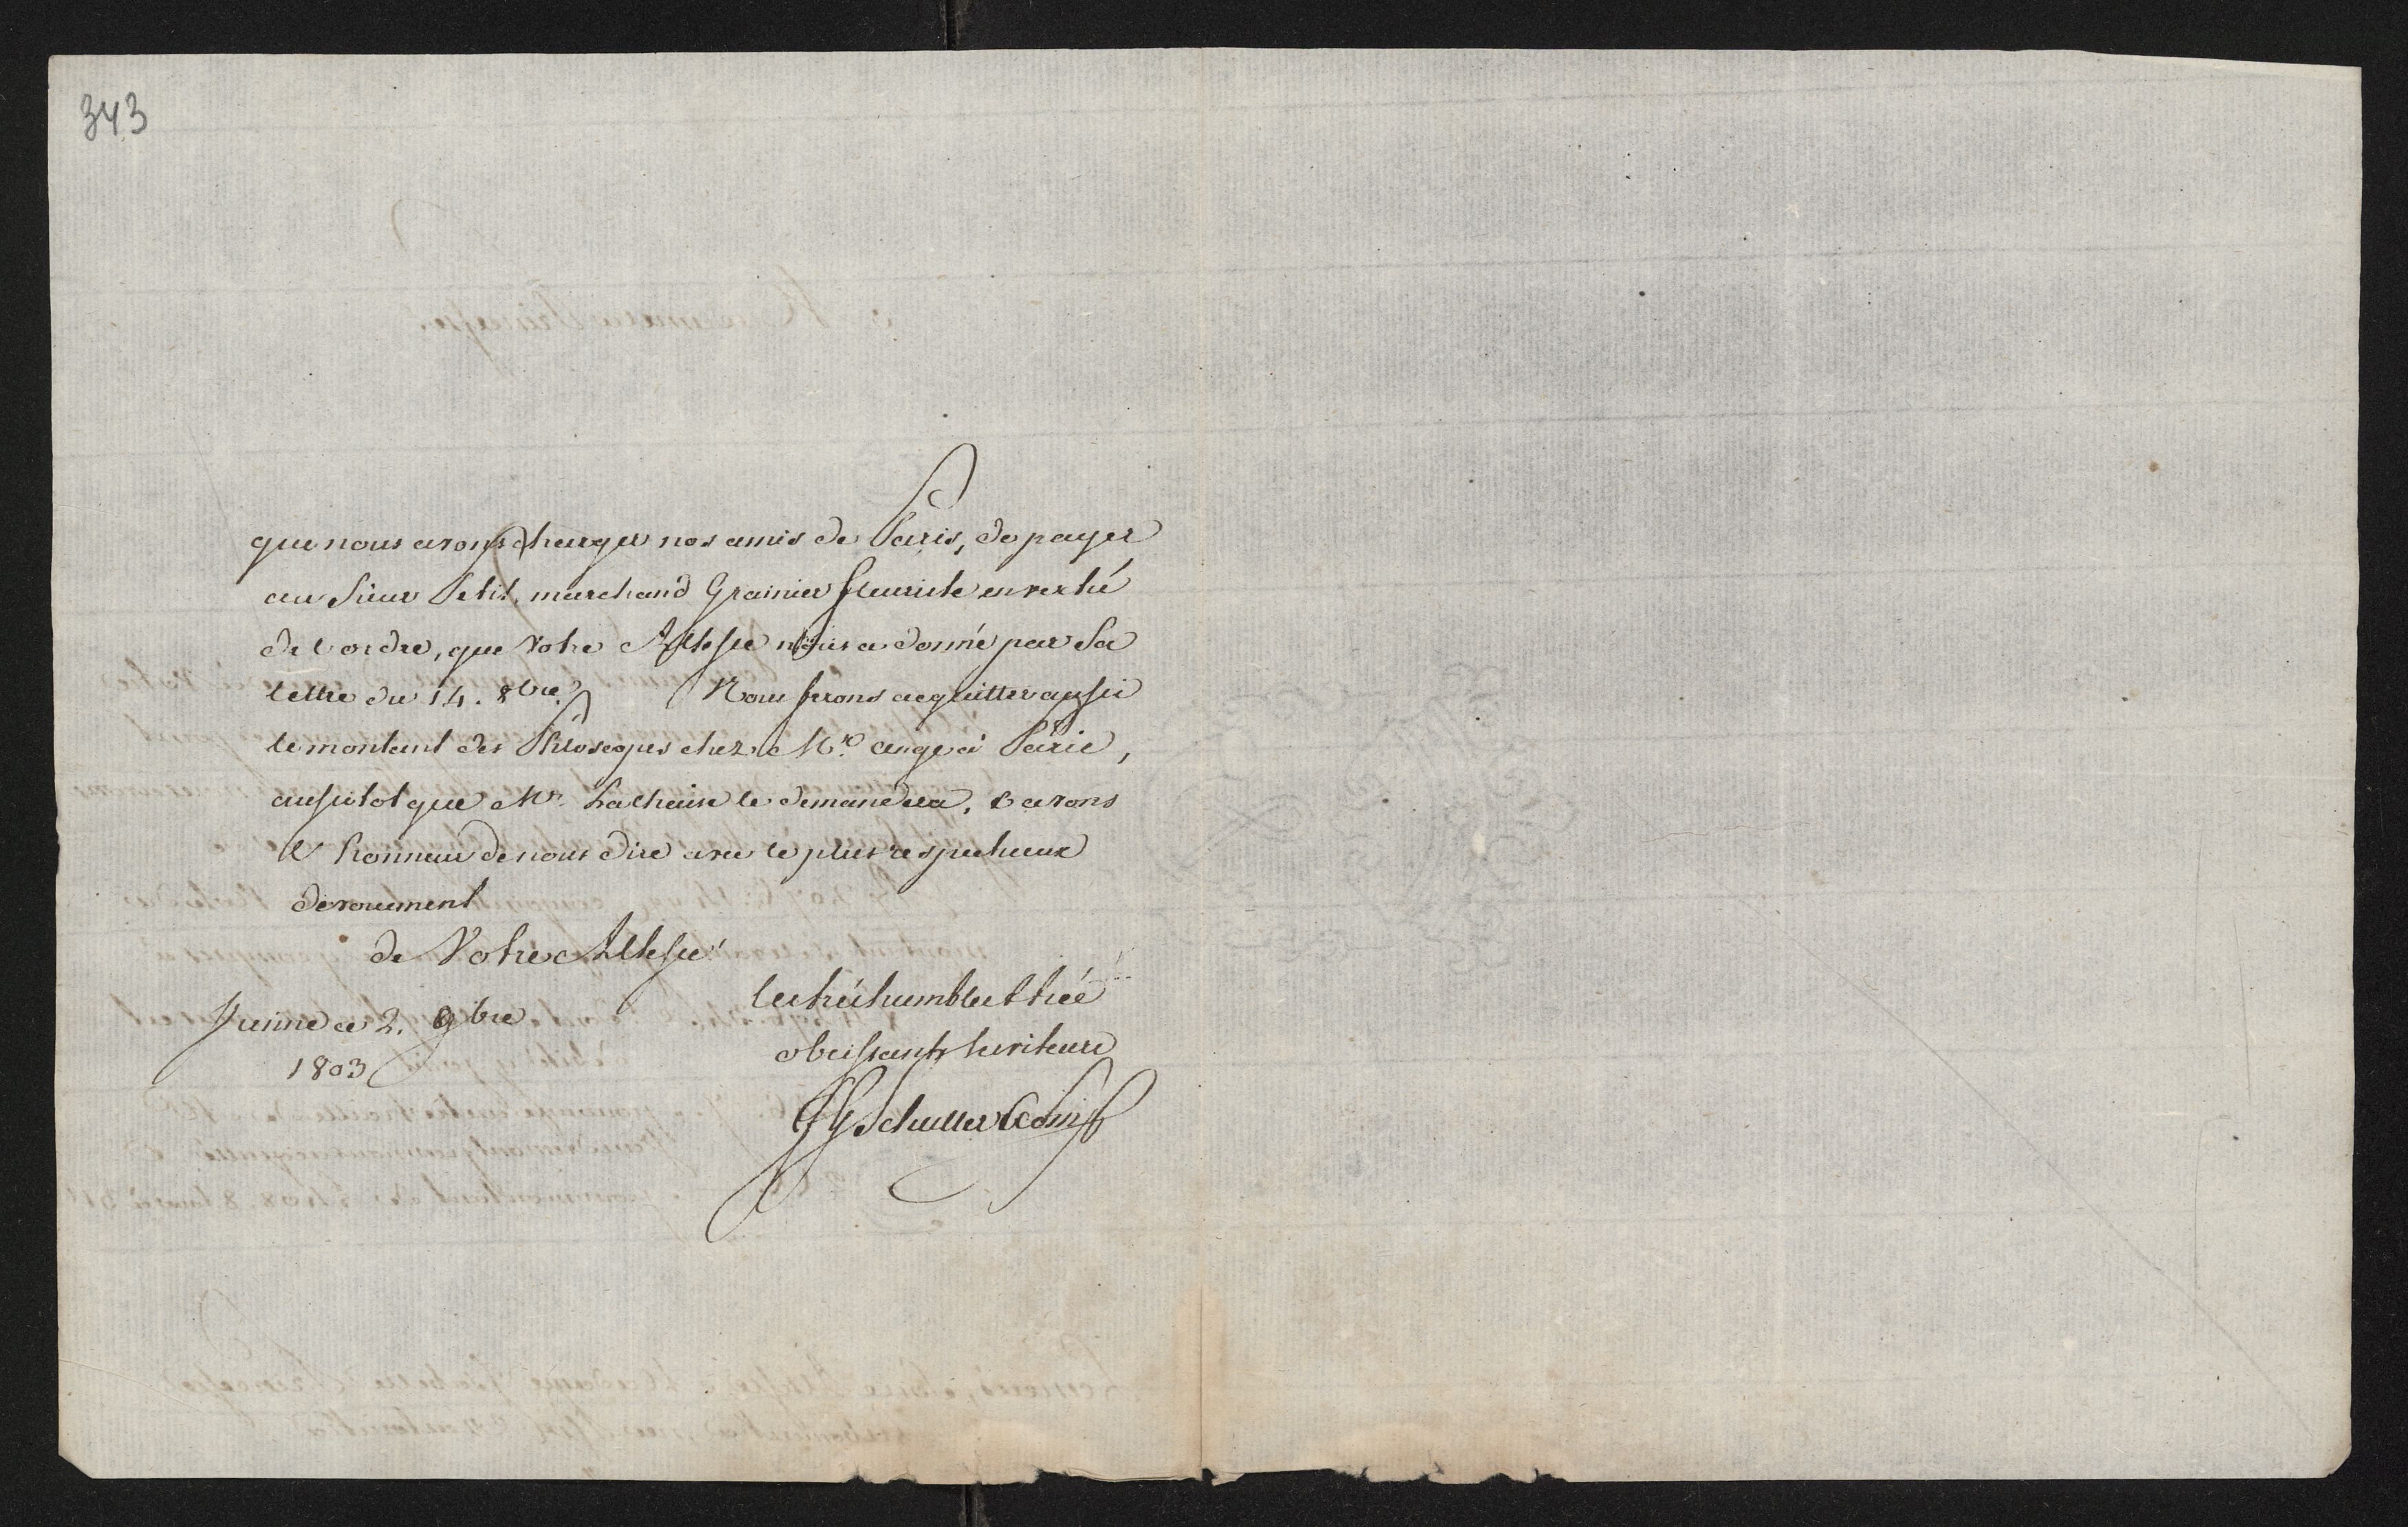 343
que nous avons charger nos amis de Paris, de payer
au Sieur Petit, marchand Grainier fleuriste en vertû
de l'ordre, que Votre Altesse nous a donné par Sa
lettre du 14. 8bre. Nous ferons acquitter aussi
le montant des Kiosques chez Mr. ange à Paris,
aussitot que Mr. Lachaise le demandera, & avons
l'honneur de nous dire avec le plus respectueux
devouement
de Votre Altesse!
les trés humbles & trés
obeissants Serviteurs
Vienne ce 2. 9bre
1803
Schuller & Comp